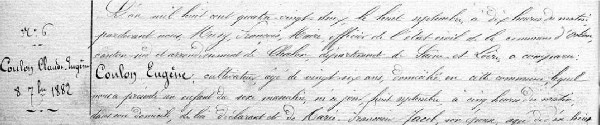 N° 6
Coulon Claude Eugène
8 7bre 1882
L'an mil huit cent quatre vingt deux, le huit septembre, à dix heures du matin,
pardevant nous, François, Maire, officier de l'état civil de la commune d'
canton et arrondissement de Chalon, département de Saône et Loire, a comparu
Coulon Eugène, cultivateur, âgé de vingt six ans, domicilié en cette commune, lequel
nous a présenté un enfant du sexe masculin, né ce jour huit septembre à cinq heures du matin,
dans son domicile, de lui déclarant et de son épouse, âgée de